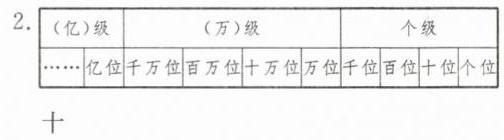 2. （亿）级 （万）级 个级
…… 亿位 千万位 百万位 十万位 万位 千位 百位 十位 个位
十